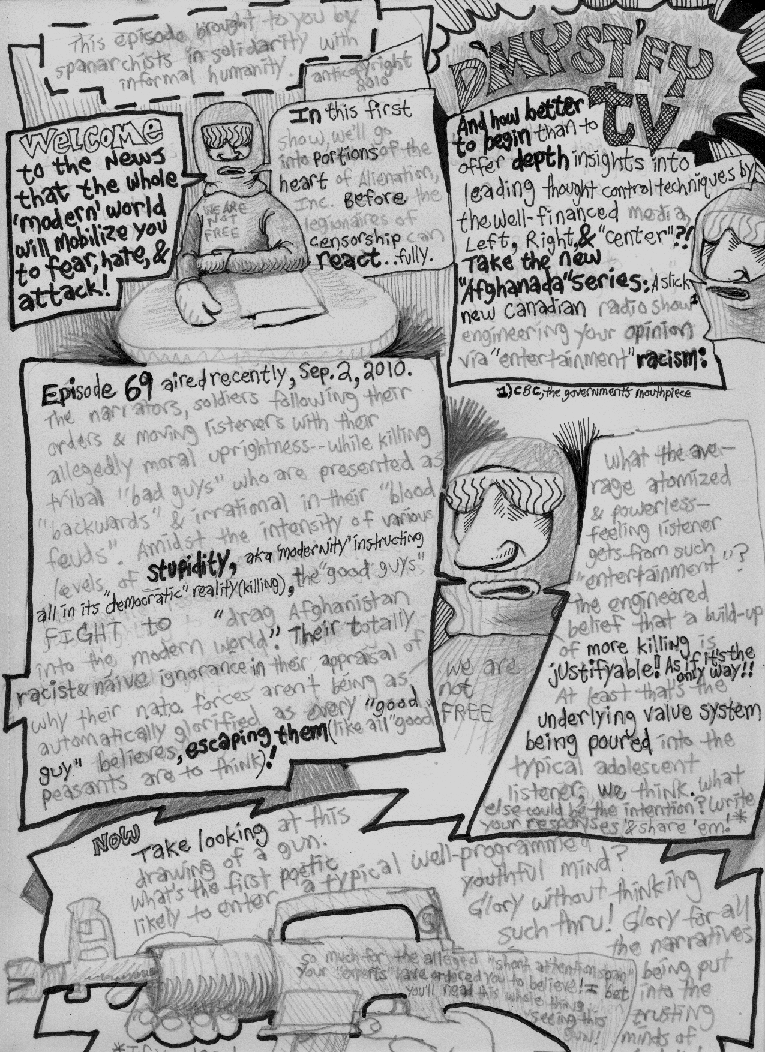 This episode brought to you by
spanarchists in solidarity with
informal humanity.
anticopyright
2010
D'MYST'FY
tv
WELCOME
to the News
that the whole
'modern' world
will mobilize you
to fear, hate, &
attack!
WE ARE
NOT
FREE
In this first
show, we'll go
into portions of the
heart of Alienation,
Inc. Before the
legionaires of
censorship can
react...fully.
And how better
to begin than to
offer depth insights into
leading thought control techniques by
the well-financed media,
Left, Right, & "center"?!
Take the new
"Afghanada" series: A slick
new Canadian radio show1
engineering your opinion
via "entertainment" racism:
1) CBC, the government's mouthpiece
Episode 69 aired recently, Sep. 2, 2010.
The narrators, soldiers following their
orders & moving listeners with their
allegedly moral uprightness--while killing
tribal "bad guys" who are presented as
"backwards" & irrational in their "blood
feuds". Amidst the intensity of various
levels of stupidity, aka 'modernity' instructing
all in its "democratic" reality (killing), the "good guys"
FIGHT to "drag Afghanistan
into the modern world". Their totally
racist & naive ignorance in their appraisal of
why their nato forces aren't being as
automatically glorified as every "good
guy" believes, escaping them (like all "good"
peasants are to think)!
we are
not
FREE
What the ave-
rage atomized
& powerless-
feeling listener
gets from such
"entertainment"?
the engineered
belief that a build-up
of more killing is
justifyable! As if it's the
only way!!
At least that's the
underlying value system
being poured into the
typical adolescent
listener, we think. what
else could be the intention? Write
your responses & share 'em!*
NOW Take looking at this
drawing of a gun.
What's the first poetic
likely to enter a typical well-programmed
youthful mind?
Glory without thinking
such thru! Glory for all
the narratives
being put
into the
trusting
minds of
so much for the alleged "short attention span"
your "experts" have ordered you to believe! I bet
you'll read this whole thing
seeing this
gun!